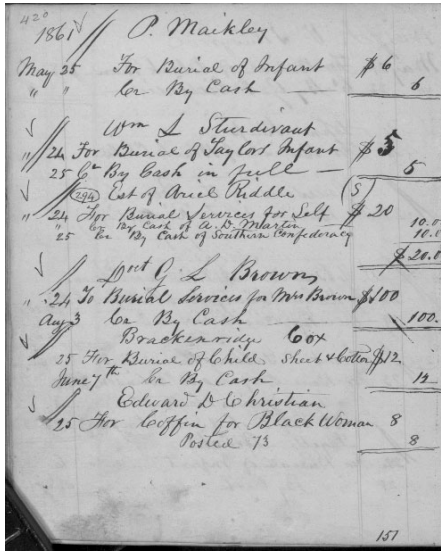 420
1861 P. Maikley
May 25 For Burial of Infant $6
" " Cr By Cash — 6
Wm L Sturdivant
" 24 For Burial of Taylors Infant $5
25 Cr By Cash in full — 5
294 Est of Ariel Riddle (S)
" 24 For Burial Services for Self $20
" Cr By Cash of A. D. Martin 10.0
25 Cr By Cash of Southern Confederacy 10.0
$20.0
Doct G L Brown
" 24 To Burial Services for Mrs Brown $100
Aug 3 Cr By Cash 100.
Brackenridge Cox
25 For Burial of Child Sheet & Cotton $12
June 7th Cr By Cash 12
Edward D Christian
25 For Coffin for Black Woman 8
Posted 73 8
151